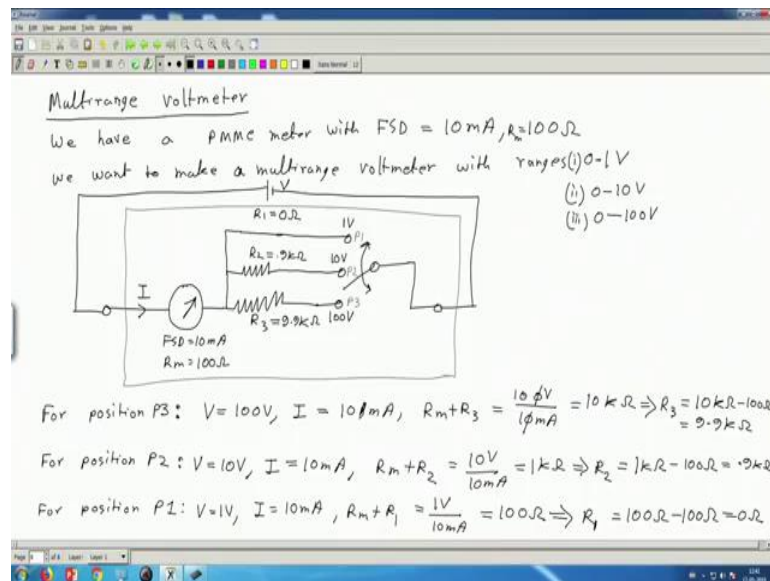 File Edit View Journal Tools Options Help
Multirange voltmeter
We have a PMMC meter with FSD = 10mA, Rm=100Ω
We want to make a multirange voltmeter with ranges (i) 0-1V
(ii) 0-10V
(iii) 0-100V
V
R1=0Ω
1V
P1
R2=.9kΩ
10V
P2
I
P3
R3=9.9kΩ
100V
FSD=10mA
Rm=100Ω
For position P3: V=100V, I = 10mA, Rm+R3 = 100V/10mA = 10kΩ ⇒ R3 = 10kΩ-100Ω
= 9.9kΩ
For position P2: V=10V, I=10mA, Rm+R2 = 10V/10mA = 1kΩ ⇒ R2 = 1kΩ-100Ω = .9kΩ
For position P1: V=1V, I=10mA, Rm+R1 = 1V/10mA = 100Ω ⇒ R1 = 100Ω-100Ω=0Ω
Layer: Layer 1